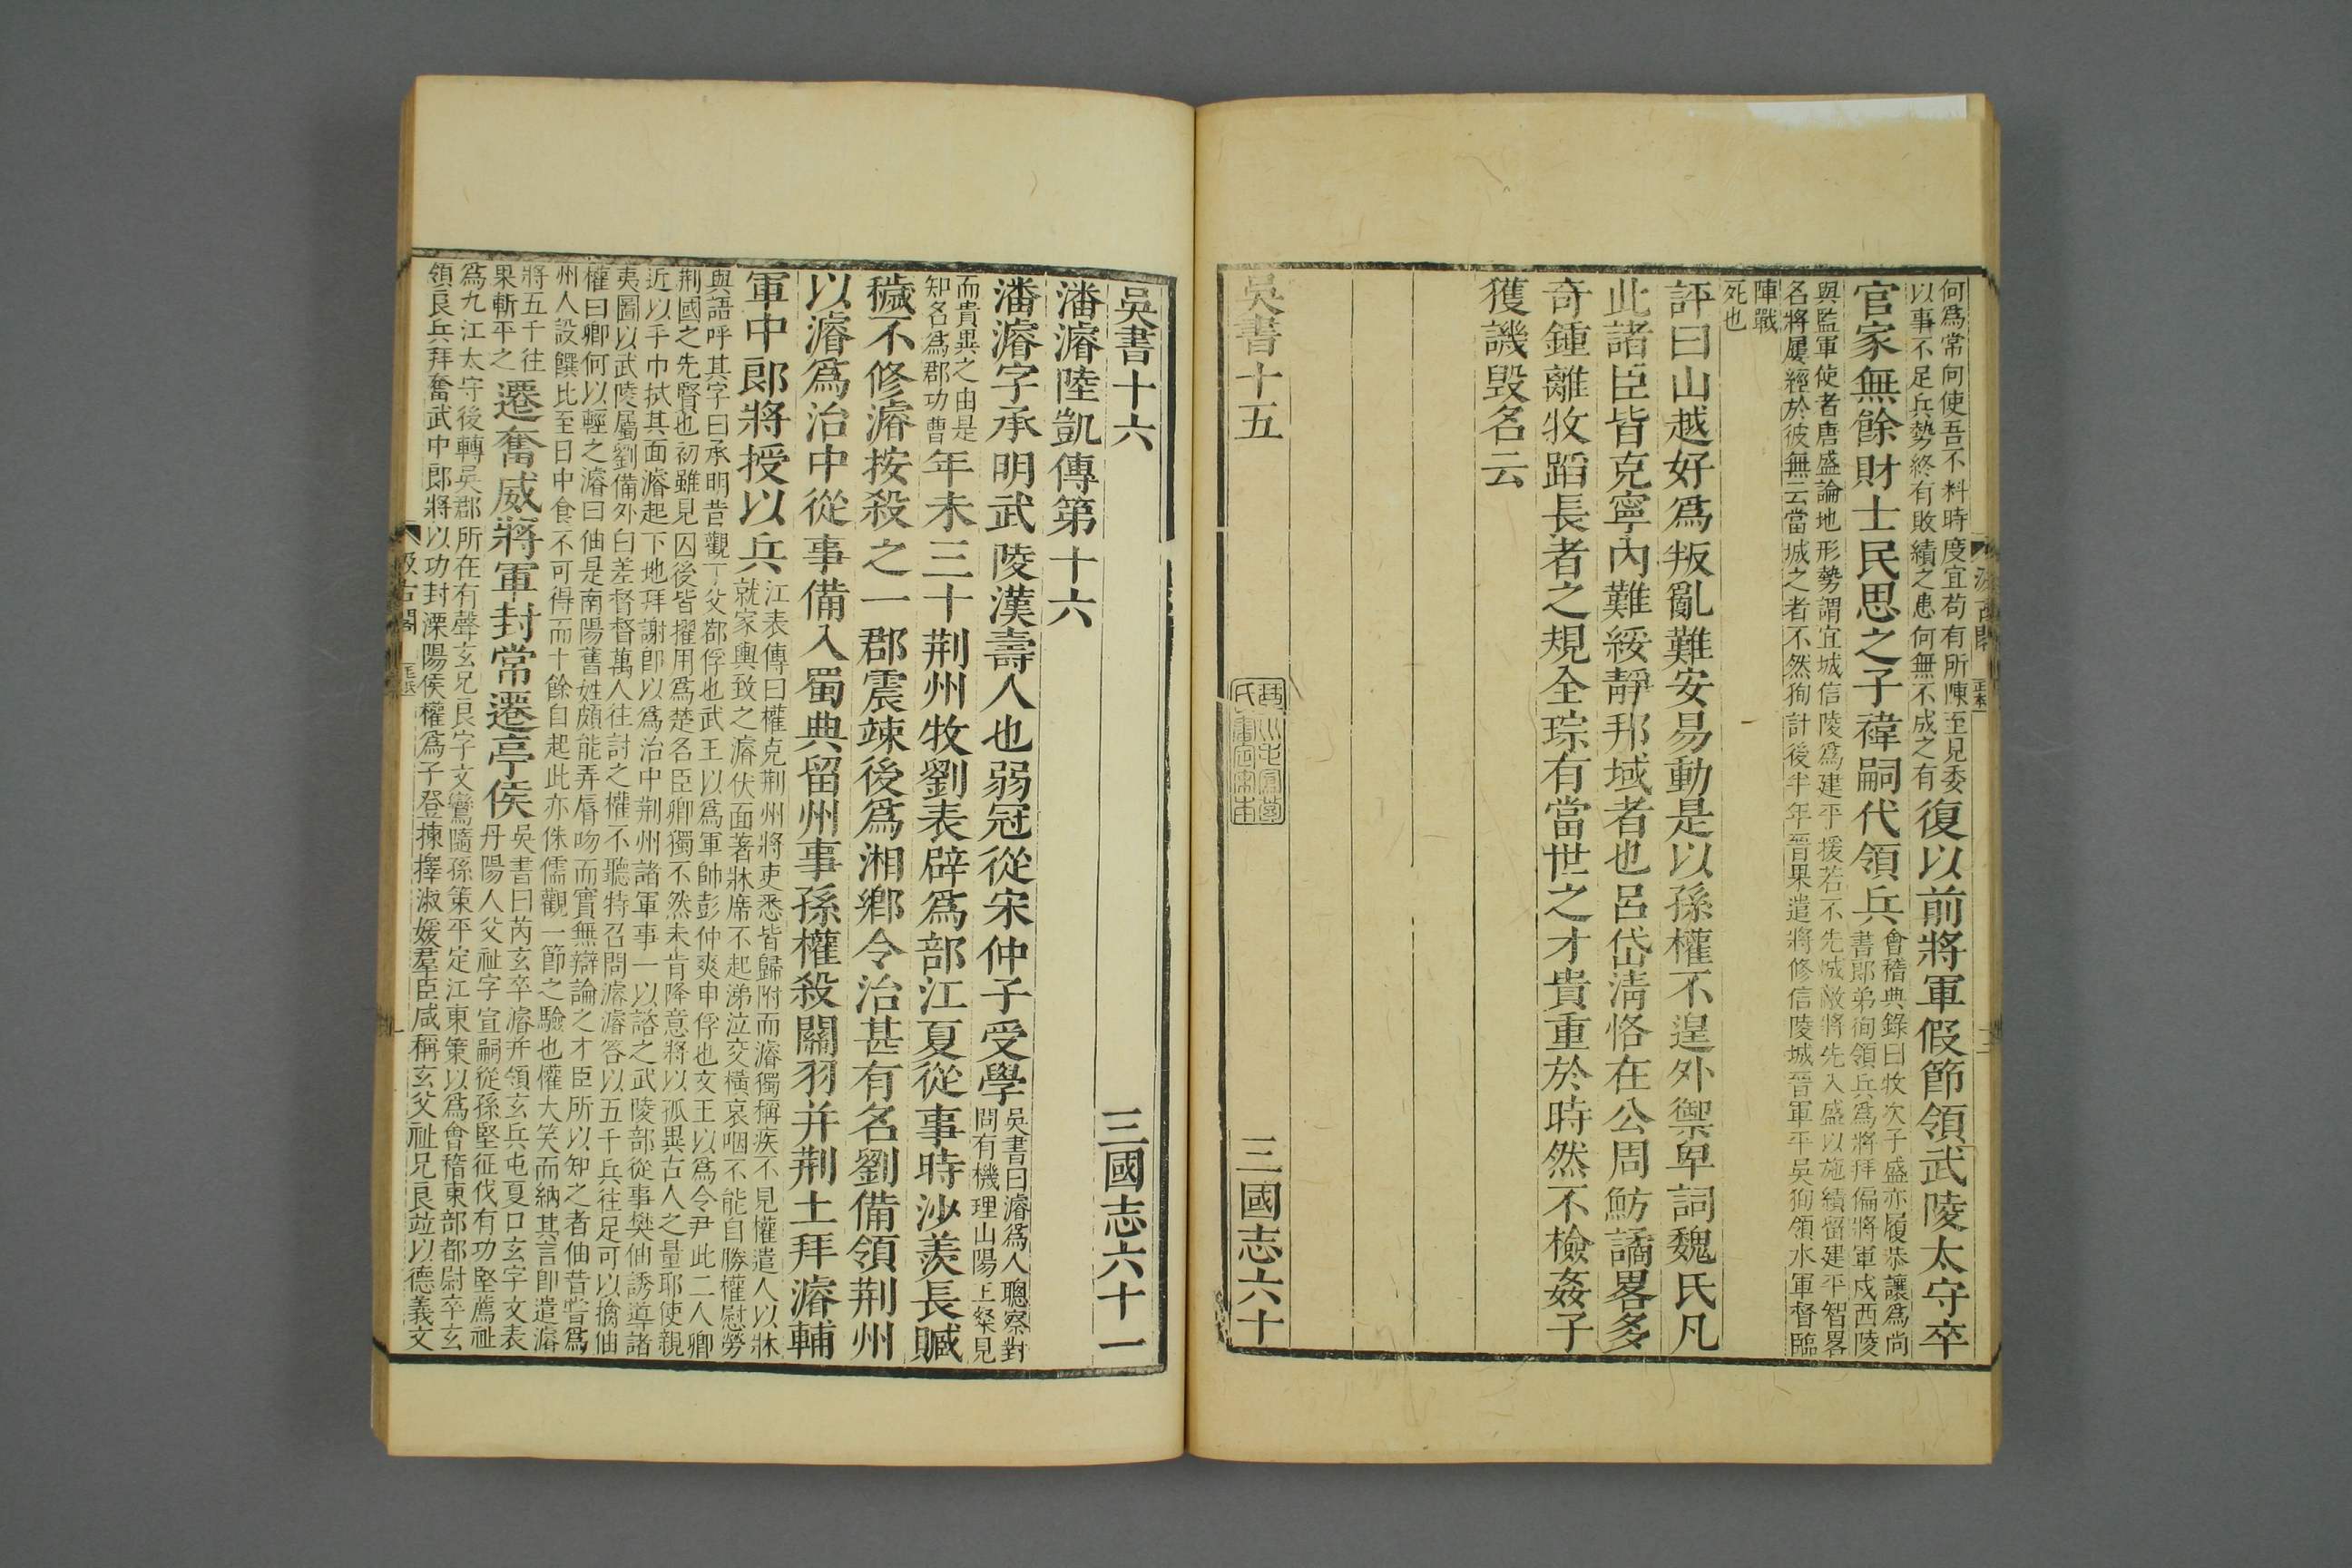 何爲常向使吾不料時度宜苟有所陳至見委
以事不足兵勢終有敗績之患何無不成之有
復以前將軍假節領武陵太守卒
官家無餘財士民思之子褘嗣代領兵
會稽典錄曰牧次子盛亦履恭讓爲尚
書郎弟徇領兵爲將拜偏將軍戍西陵
與監軍使者唐盛論地形勢謂宜城信陵爲建平援若不先城敵將先入盛以施績留建平智畧
名將屢經於彼無云當城之者不然徇計後半年晉果遣將修信陵城晉軍平吳徇領水軍督臨
陣戰
死也
評曰山越好爲叛亂難安易動是以孫權不遑外禦卑詞魏氏凡
此諸臣皆克寧內難綏靜邦域者也呂岱淸恪在公周魴譎畧多
奇鍾離牧蹈長者之規全琮有當世之才貴重於時然不檢姦子
獲譏毀名云
吳書十五
三國志六十
吳書十六
三國志六十一
潘濬陸凱傳第十六
潘濬字承明武陵漢壽人也弱冠從宋仲子受學
吳書曰濬爲人聰察對
問有機理山陽王粲見
而貴異之由是
知名爲郡功曹
年未三十荆州牧劉表辟爲部江夏從事時沙羨長贓
穢不修濬按殺之一郡震竦後爲湘鄉令治甚有名劉備領荆州
以濬爲治中從事備入蜀典留州事孫權殺關羽并荆土拜濬輔
軍中郎將授以兵
江表傳曰權克荆州將吏悉皆歸附而濬獨稱疾不見權遣人以牀
就家輿致之濬伏面著牀席不起涕泣交橫哀咽不能自勝權慰勞
與語呼其字曰承明昔觀丁父鄀俘也武王以爲軍帥彭仲爽申俘也文王以爲令尹此二人卿
荆國之先賢也初雖見囚後皆擢用爲楚名臣卿獨不然未肯降意將以孤異古人之量耶使親
近以手巾拭其面濬起下地拜謝卽以爲治中荆州諸軍事一以諮之武陵部從事樊伷誘導諸
夷圖以武陵屬劉備外白差督督萬人往討之權不聽特召問濬濬答以五千兵往足可以擒伷
權曰卿何以輕之濬曰伷是南陽舊姓頗能弄脣吻而實無辯論之才臣所以知之者伷昔嘗爲
州人設饌比至日中食不可得而十餘自起此亦侏儒觀一節之驗也權大笑而納其言卽遣濬
將五千往
果斬平之
遷奮威將軍封常遷亭侯
吳書曰芮玄卒濬并領玄兵屯夏口玄字文表
丹陽人父祉字宣嗣從孫堅征伐有功堅薦祉
爲九江太守後轉吳郡所在有聲玄兄良字文鸞隨孫策平定江東策以爲會稽東部都尉卒玄
領良兵拜奮武中郎將以功封溧陽侯權爲子登揀擇淑媛羣臣咸稱玄父祉兄良竝以德義文